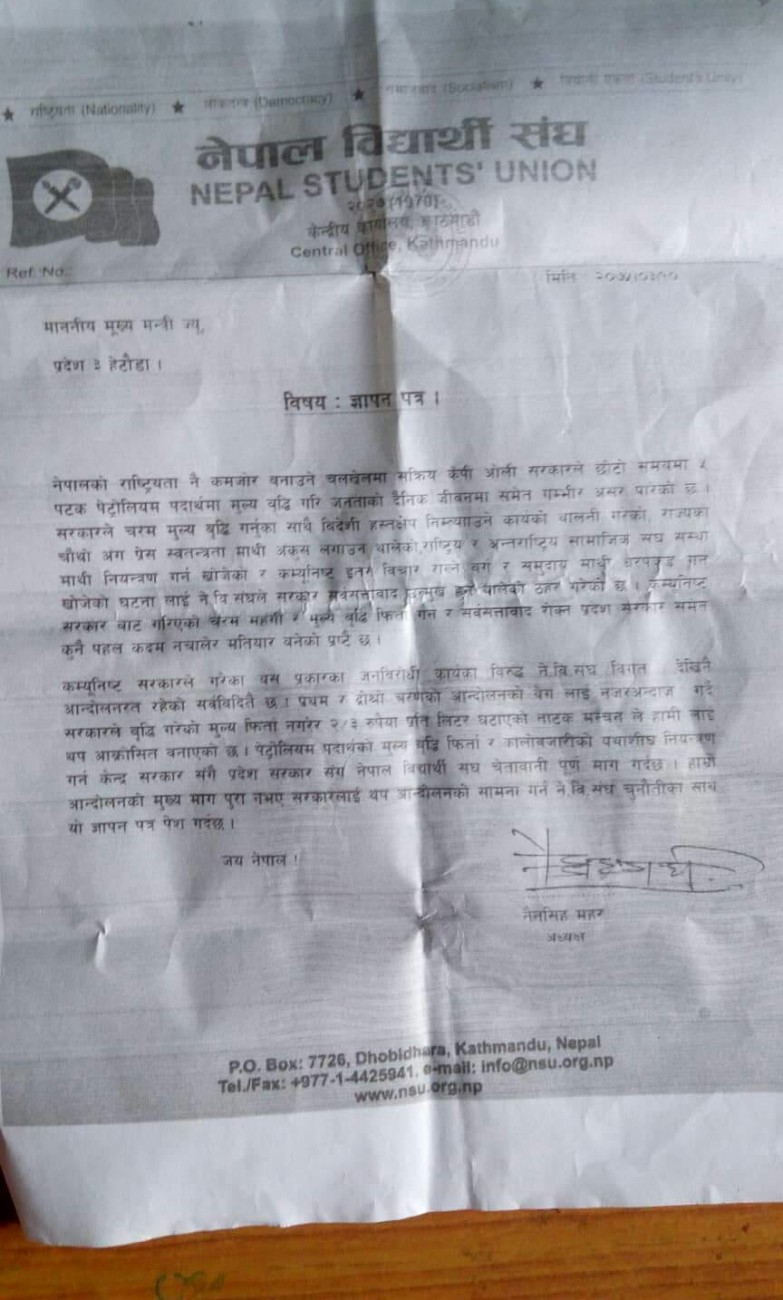 ★ राष्ट्रियता (Nationality) ★ लोकतन्त्र (Democracy) ★ समाजवाद (Socialism) ★ विद्यार्थी एकता (Students Unity)
नेपाल विद्यार्थी संघ
NEPAL STUDENTS' UNION
२०२७(1970)
केन्द्रीय कार्यालय, काठमाडौं
Central Office, Kathmandu
Ref. No.:
मिति
माननीय मूख्य मन्त्री ज्यू,
प्रदेश ३ हेटौडा ।
विषय : ज्ञापन पत्र ।
नेपालको राष्ट्रियता नै कमजोर बनाउने चलखेलमा सक्रिय केपी ओली सरकारले छोटो समयमा ५
पटक पेट्रोलियम पदार्थमा मुल्य बृद्धि गरि जनताको दैनिक जीवनमा समेत गम्भीर असर पारेको छ ।
सरकारले चरम मुल्य बृद्धि गर्नुका साथै बिदेशी हस्तक्षेप निम्त्याउने कार्यको थालनी गरेको, राज्यको
चौथो अंग प्रेस स्वतन्त्रता माथी अंकुस लगाउन थालेको,राष्ट्रिय र अन्तराष्ट्रिय सामाजिक संघ संस्था
माथी नियन्त्रण गर्न खोजेको र कम्युनिष्ट इत्तर विचार राख्ने बर्ग र समुदाय माथी धरपकड गर्न
खोजेको घटना लाई ने.वि.संघले सरकार सर्वसत्तावाद उन्मुख हुन थालेको ठहर गरेको छ । कम्युनिष्ट
सरकार बाट गरिएको चरम महंगी र मुल्य बृद्धि फिर्ता गर्न र सर्वसत्तावाद रोक्न प्रदेश सरकार समेत
कुनै पहल कदम नचालेर मतियार बनेको प्रष्टै छ ।
कम्युनिष्ट सरकारले गरेका यस प्रकारका जनविरोधी कार्यका विरुद्ध ने.वि.संघ विगत देखिनै
आन्दोलनरत रहेको सर्वविदितै छ । प्रथम र दोश्रो चरणको आन्दोलनको वेग लाई नजरअन्दाज गर्दै
सरकारले बृद्धि गरेको मुल्य फिर्ता नगरेर २/३ रुपैया प्रति लिटर घटाएको नाटक मञ्चन ले हामी लाई
थप आक्रोसित बनाएको छ । पेट्रोलियम पदार्थको मुल्य बृद्धि फिर्ता र कालोबजारीको यथाशीघ्र नियन्त्रण
गर्न केन्द्र सरकार संगै प्रदेश सरकार संग नेपाल विद्यार्थी संघ चेतावानी पूर्ण माग गर्दछ । हाम्रो
आन्दोलनको मुख्य माग पुरा नभए सरकारलाई थप आन्दोलनको सामना गर्न ने.वि.संघ चुनौतीका साथ
यो ज्ञापन पत्र पेश गर्दछ ।
जय नेपाल !
नैनसिंह महर
अध्यक्ष
P.O. Box: 7726, Dhobidhara, Kathmandu, Nepal
Tel./Fax: +977-1-4425941, e-mail: info@nsu.org.np
www.nsu.org.np